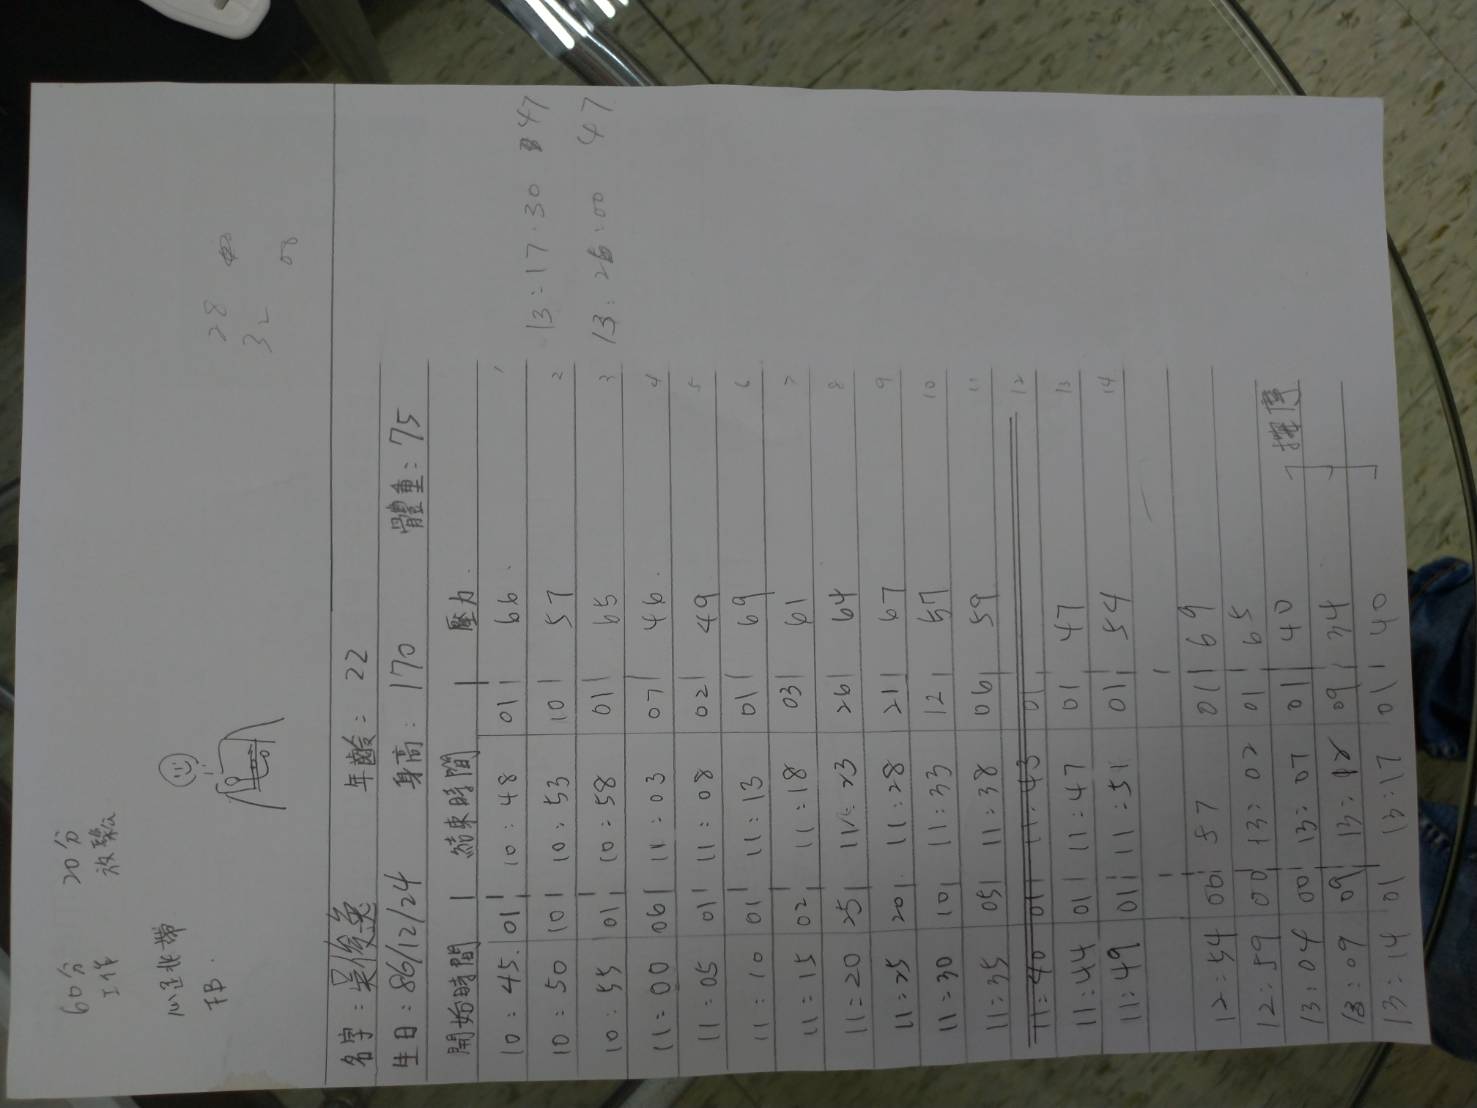 60分 20分
工作 放鬆
心跳帶
FB.
28
32
00
名字：吳俊 年齡：22
生日：86/12/24 身高：170 體重：75
開始時間 | 結束時間 | 壓力.
10:45. 01 | 10:48 01 | 66. 1
10:50 10 | 10:53 10 | 57 2
10:55 01 | 10:58 01 | 65 3
11:00 06 | 11:03 07 | 46. 4
11:05 01 | 11:08 02 | 49 5
11:10 01 | 11:13 01 | 69 6
11:15 02 | 11:18 03 | 61 7
11:20 25 | 11:23 26 | 64 8
11:25 20 | 11:28 21 | 67 9
11:30 10 | 11:33 12 | 57 10
11:35 05 | 11:38 06 | 59 11
11:40 01 | 11:43 01 12
11:44 01 | 11:47 01 | 47 13
11:49 01 | 11:51 01 | 54 14
12:54 00 | 57 01 | 69
12:59 00 | 13:02 01 | 65
13:04 00 | 13:07 01 | 40
13:09 09 | 13:12 09 | 34
13:14 01 13:17 01 | 40
13:17.30 47
13:26:00 47